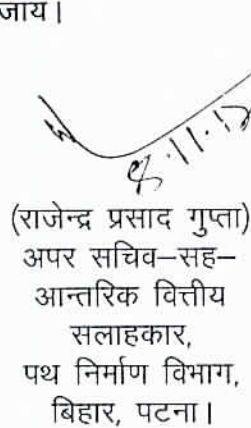 जाय।
8.11.17
(राजेन्द्र प्रसाद गुप्ता)
अपर सचिव–सह–
आन्तरिक वित्तीय
सलाहकार,
पथ निर्माण विभाग,
बिहार, पटना।